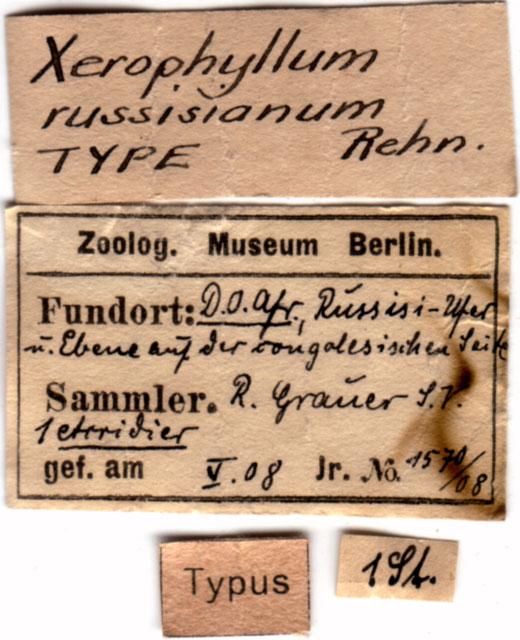 Xerophyllum
russisianum
TYPE Rehn.
Zoolog. Museum Berlin.
Fundort: D.O.Afr., Russisi-Ufer
u. Ebene auf der congolesischen Seite
Sammler. R. Grauer S.V.
1
gef. am V.08 Jr. No. 1570/08
Typus
1 St.